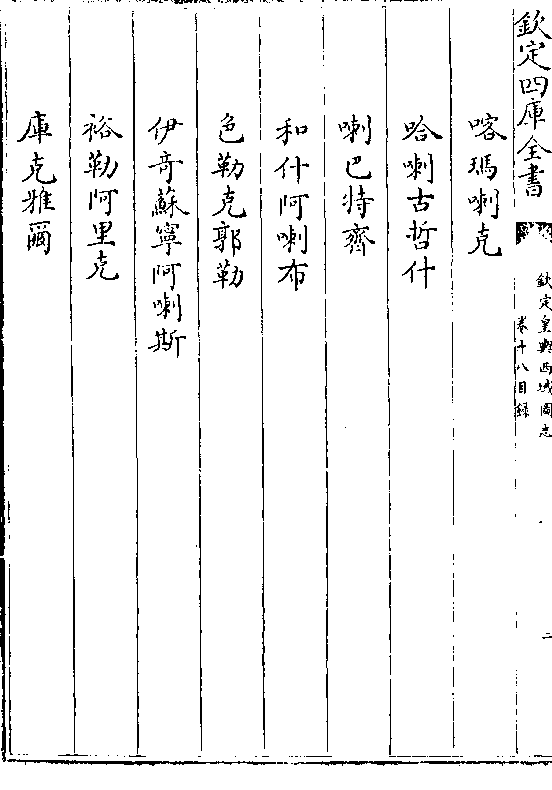 欽定四庫全書
欽定皇輿西域圖志
卷十八目録
二
喀瑪喇克
哈喇古哲什
喇巴特齊
和什阿喇布
色勒克郭勒
伊奇蘇寧阿喇斯
裕勒阿里克
庫克雅爾